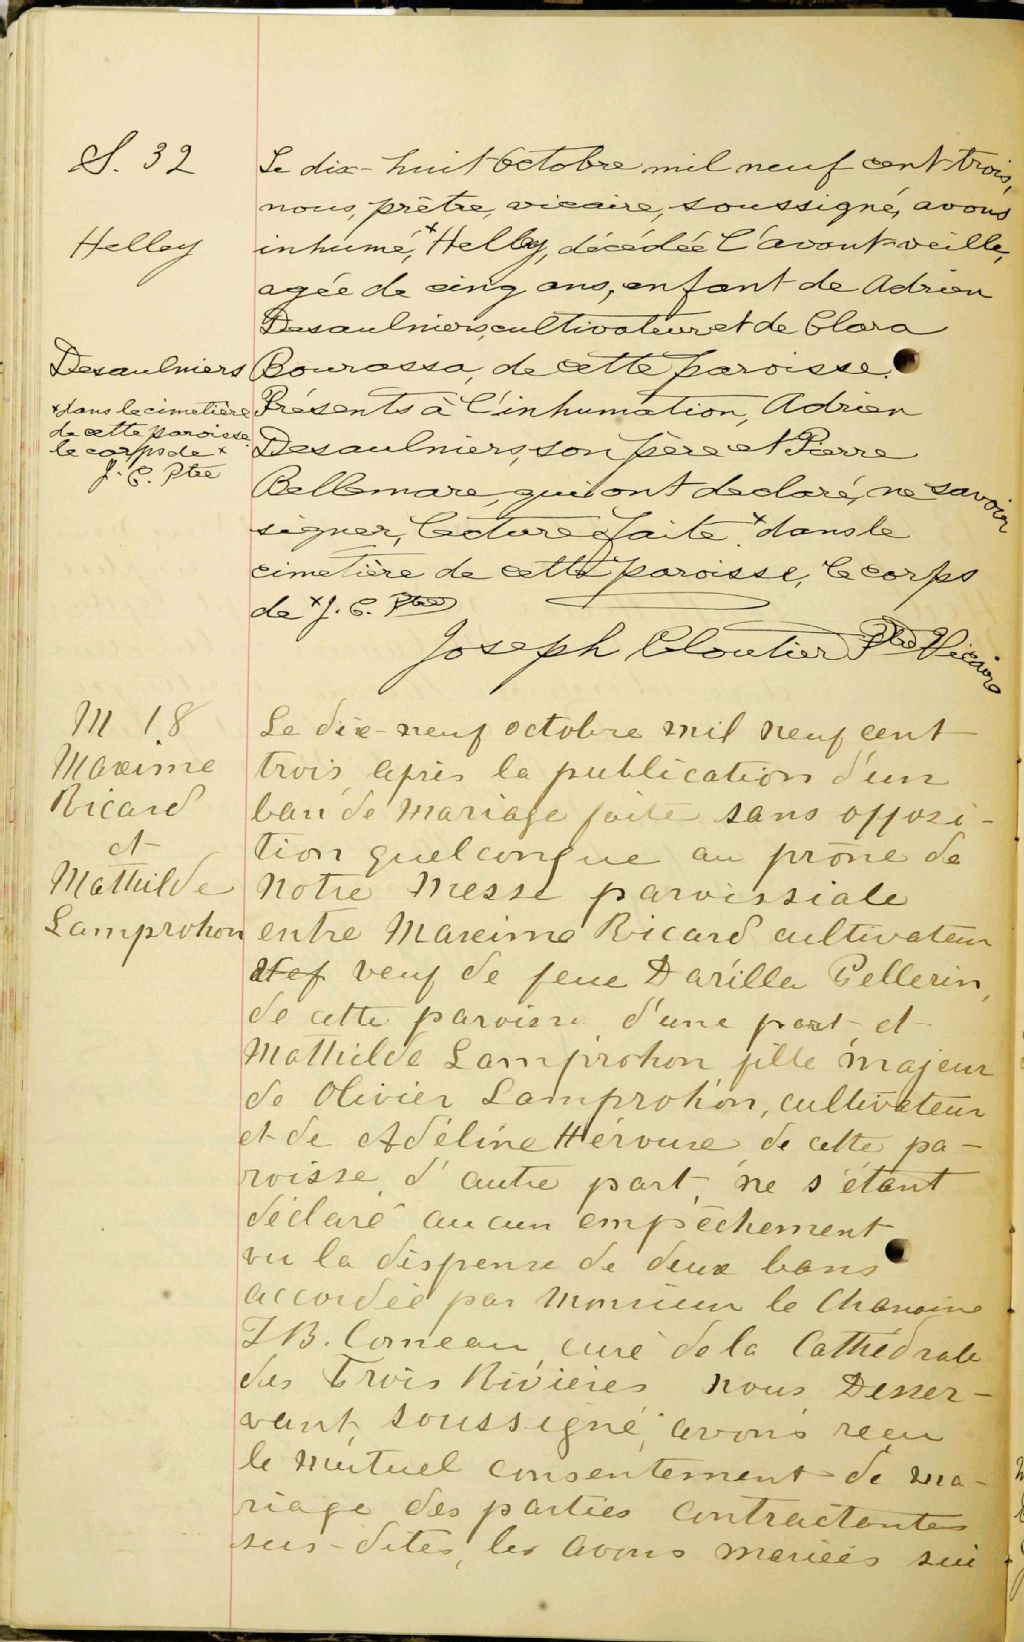 S. 32
Helley
Desaulniers
x dans le cimetière
de cette paroisse
le corps de x
J. C. Ptre
Le dix-huit Octobre mil neuf cent trois,
nous, prêtre, vicaire, soussigné, avons
inhumé, x Helley, décédée l'avant-veille,
agée de cinq ans, enfant de Adrien
Desaulniers, cultivateur et de Clara
Bourassa, de cette paroisse.
Présents à l'inhumation, Adrien
Desaulniers, son père et Pierre
Bellemare, qui ont declaré, ne savoir
signer, lecture faite. x dans le
cimetière de cette paroisse, le corps
de x J. C. Ptre
Joseph Cloutier Ptre Vicaire
M 18
Maxime
Ricard
et
Mathilde
Lamprohon
Le dix-neuf octobre mil neuf cent
trois après la publication d'un
ban de mariage faite sans opposi-
tion quelconque au prône de
notre messe paroissiale
entre Maxime Ricard cultivateur
veuf de feue Darilla Pellerin,
de cette paroisse d'une part et
Mathilde Lamprohon fille majeur
de Olivier Lamprohon, cultivateur
et de Adéline Héroux de cette pa-
roisse d'autre part, ne s'étant
déclaré aucun empêchement
vu la dispense de deux bans
accordée par Monsieur le Chanoine
J B. Comeau curé de la Cathédrale
des Trois Rivières nous Desser-
vant, soussigné, avons reçu
le mutuel consentement de ma-
riage des parties contractantes
sus-dites, les avons mariés sui